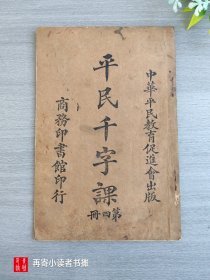 中華平民教育促進會出版
平民千字課
第四冊
商務印書館印行
再寄小读者书摊